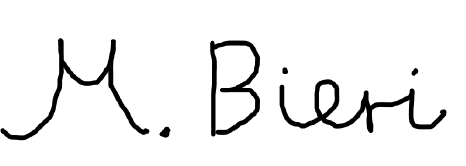 M. Bieri